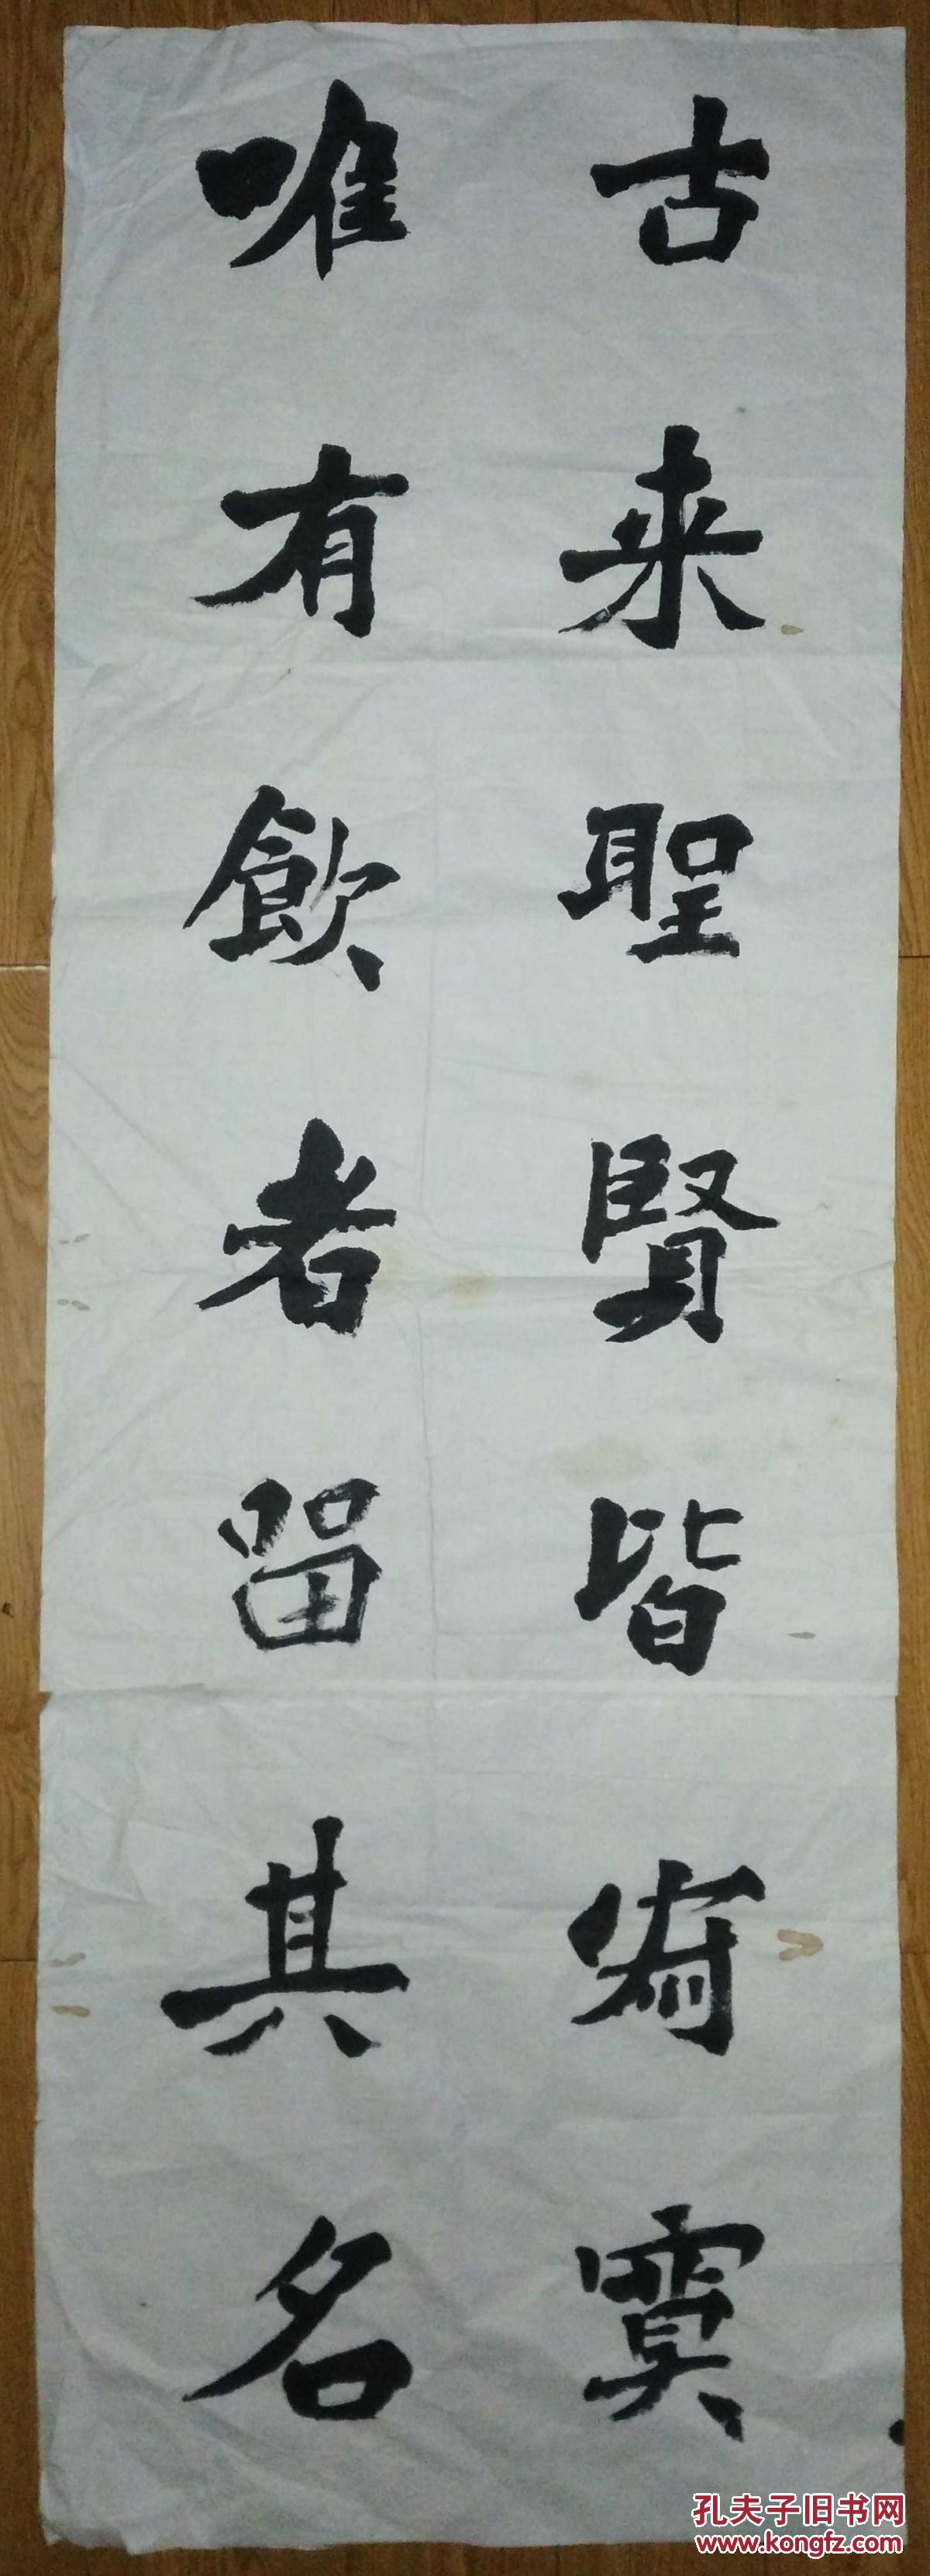 古来聖賢皆寂寞
唯有飲者留其名
孔夫子旧书网
www.kongfz.com